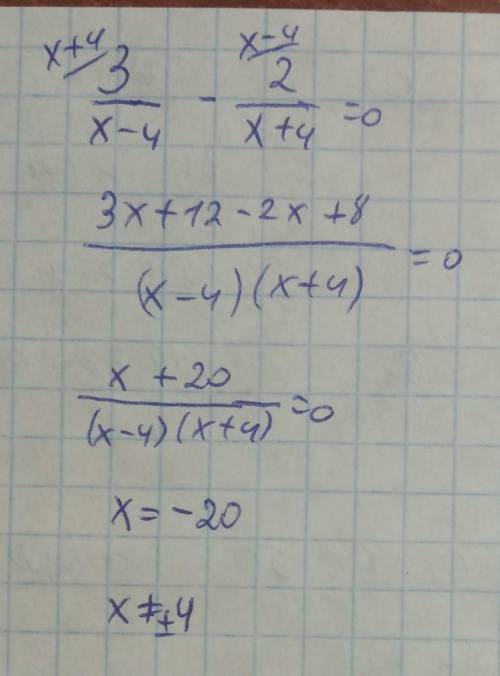 x+4/ 3 / (x-4) - x-4/ 2 / (x+4) = 0
(3x+12-2x+8) / ((x-4)(x+4)) = 0
(x+20) / ((x-4)(x+4)) = 0
x = -20
x ≠ ±4